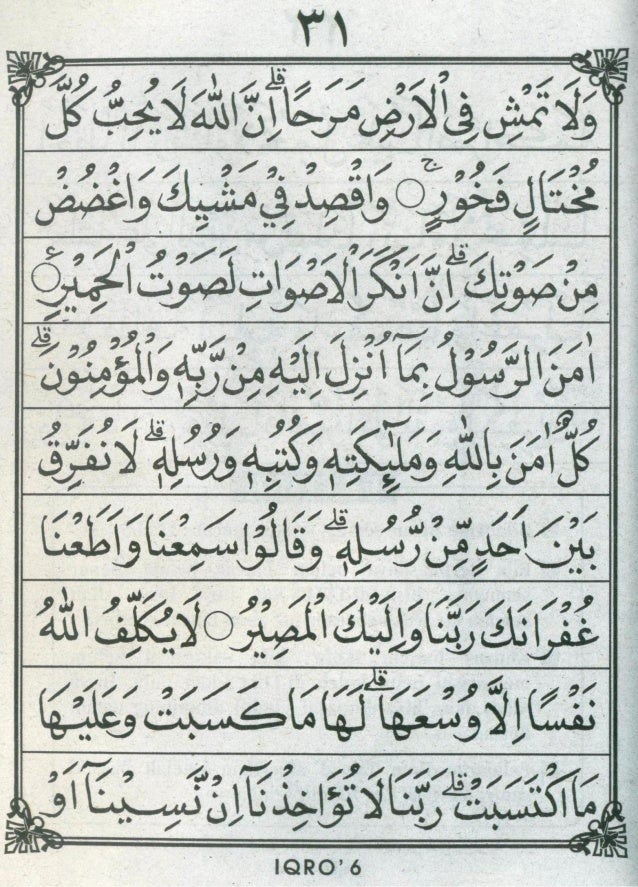 ٣١
وَلَا تَمْشِ فِى الْاَرْضِ مَرَحًاۗ اِنَّ اللّٰهَ لَا يُحِبُّ كُلَّ
مُخْتَالٍ فَخُوْرٍۚ ○ وَاقْصِدْ فِيْ مَشْيِكَ وَاغْضُضْ
مِنْ صَوْتِكَۗ اِنَّ اَنْكَرَ الْاَصْوَاتِ لَصَوْتُ الْحَمِيْرِ ○ࣖ
اٰمَنَ الرَّسُوْلُ بِمَآ اُنْزِلَ اِلَيْهِ مِنْ رَّبِّهٖ وَالْمُؤْمِنُوْنَۗ
كُلٌّ اٰمَنَ بِاللّٰهِ وَمَلٰۤىِٕكَتِهٖ وَكُتُبِهٖ وَرُسُلِهٖۗ لَا نُفَرِّقُ
بَيْنَ اَحَدٍ مِّنْ رُّسُلِهٖۗ وَقَالُوْا سَمِعْنَا وَاَطَعْنَا
غُفْرَانَكَ رَبَّنَا وَاِلَيْكَ الْمَصِيْرُ ○ لَا يُكَلِّفُ اللّٰهُ
نَفْسًا اِلَّا وُسْعَهَاۗ لَهَا مَا كَسَبَتْ وَعَلَيْهَا
مَا اكْتَسَبَتْۗ رَبَّنَا لَا تُؤَاخِذْنَآ اِنْ نَّسِيْنَآ اَوْ
IQRO' 6